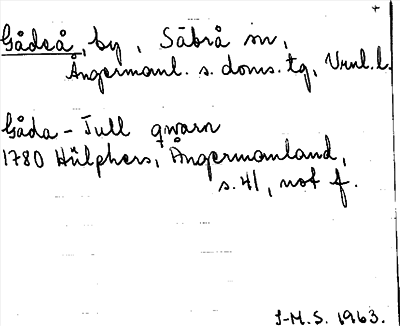 Gådeå, by, Säbrå sn,
Ångermanl. s. doms. tg, Vrnl. l.
Gåda - Tull qwarn
1780 Hülphers, Ångermanland,
s. 41, not f.
I-M.S. 1963.